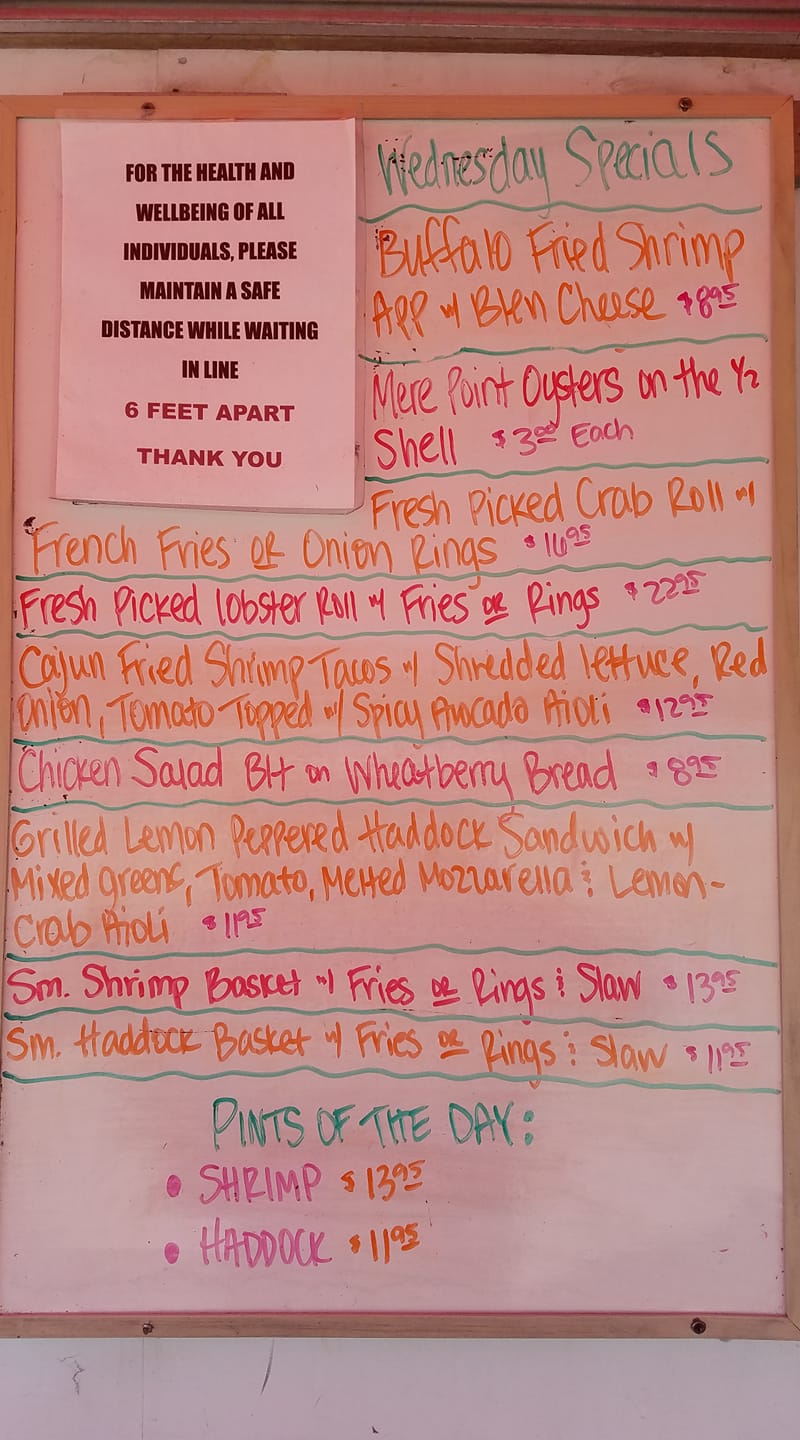 FOR THE HEALTH AND
WELLBEING OF ALL
INDIVIDUALS, PLEASE
MAINTAIN A SAFE
DISTANCE WHILE WAITING
IN LINE
6 FEET APART
THANK YOU
Wednesday Specials
Buffalo Fried Shrimp
App w/ Bleu Cheese $8.95
Mere Point Oysters on the 1/2
Shell $3.00 Each
Fresh Picked Crab Roll w/
French Fries or Onion Rings $16.95
Fresh Picked Lobster Roll w/ Fries or Rings $22.95
Cajun Fried Shrimp Tacos w/ Shredded lettuce, Red
Onion, Tomato Topped w/ Spicy Avocado Aioli $12.95
Chicken Salad Blt on Wheatberry Bread $8.95
Grilled Lemon Peppered Haddock Sandwich w/
Mixed greens, Tomato, Melted Mozzarella & Lemon-
Crab Aioli $11.95
Sm. Shrimp Basket w/ Fries or Rings & Slaw $13.95
Sm. Haddock Basket w/ Fries or Rings & Slaw $11.95
PINTS OF THE DAY:
• SHRIMP $13.95
• HADDOCK $11.95